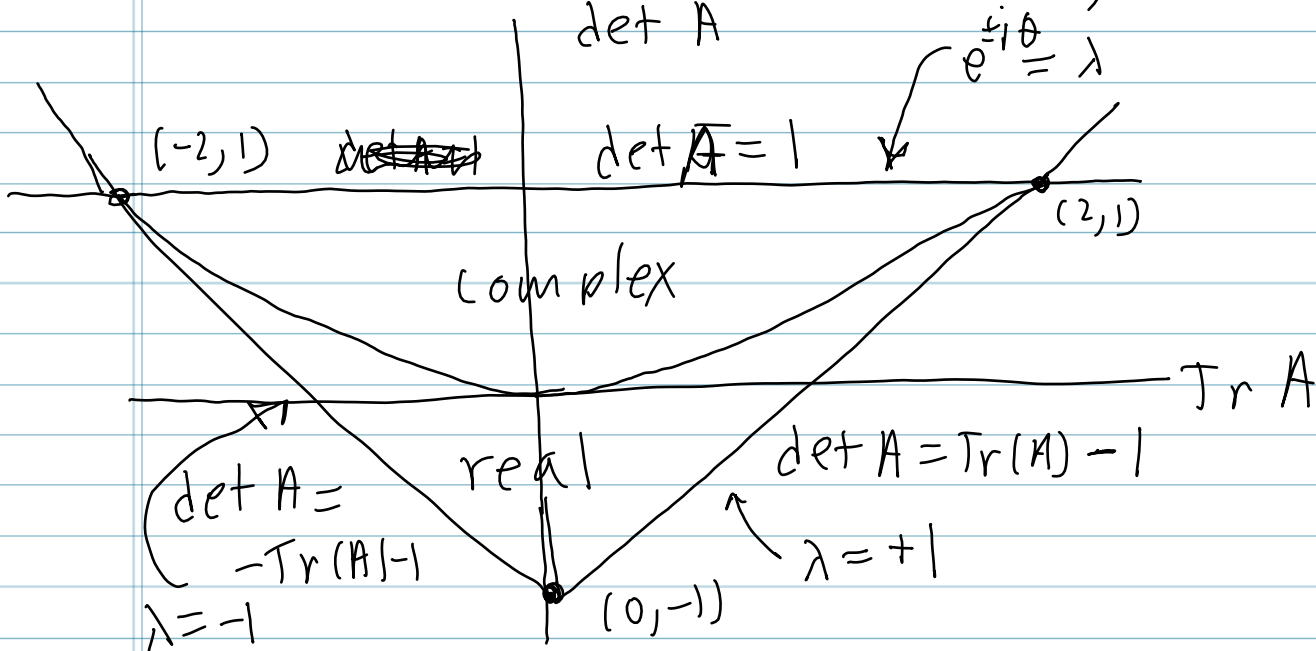 det A
e^{±iθ} = λ
(-2, 1)
det A = 1
(2, 1)
complex
Tr A
real
det A = Tr(A) - 1
det A =
-Tr(A)-1
λ = +1
λ = -1
(0, -1)